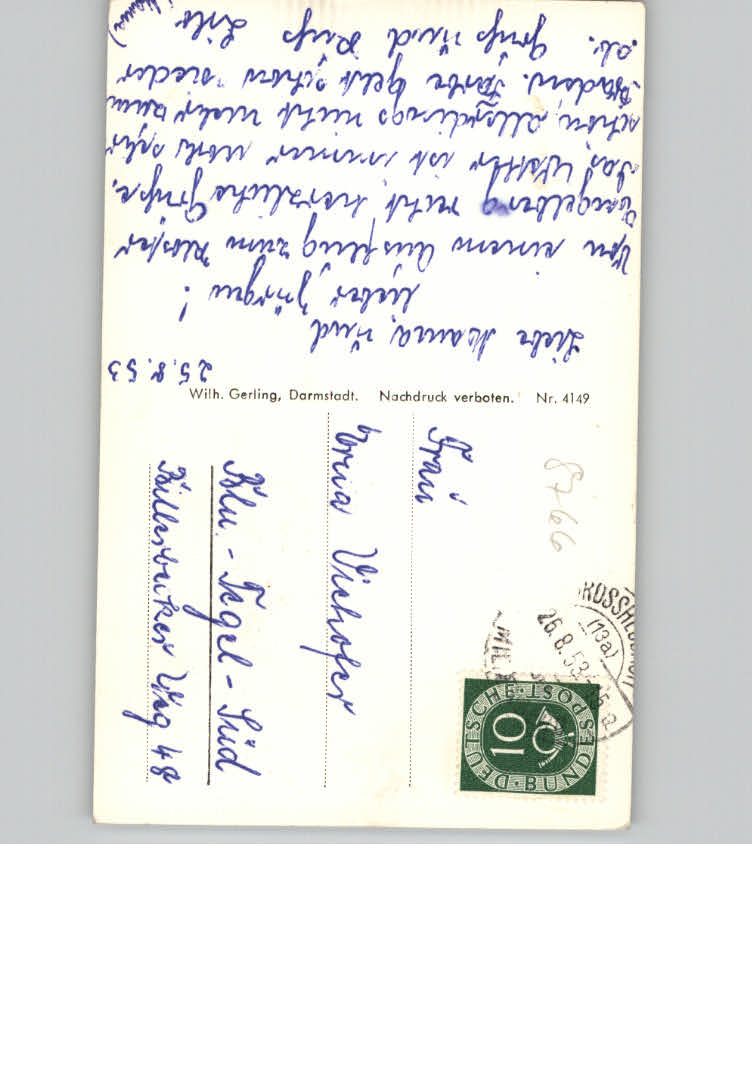 25.8.53
Liebe Mama, und
lieber Jürgen!
Von einem Ausflug zum Kloster
Engelberg recht herzliche Grüße.
Das Wetter ist immer noch sehr
schön, allerdings nicht mehr zum
Baden. geht schon wieder
ab. Gruß und Kuß
Wilh. Gerling, Darmstadt. Nachdruck verboten. Nr. 4149
Frau
Erna Viehofer
Bln.-Tegel-Süd
Billerbecker Weg 48
8766
(13a)
26.8.53
DEUTSCHE BUNDESPOST
10